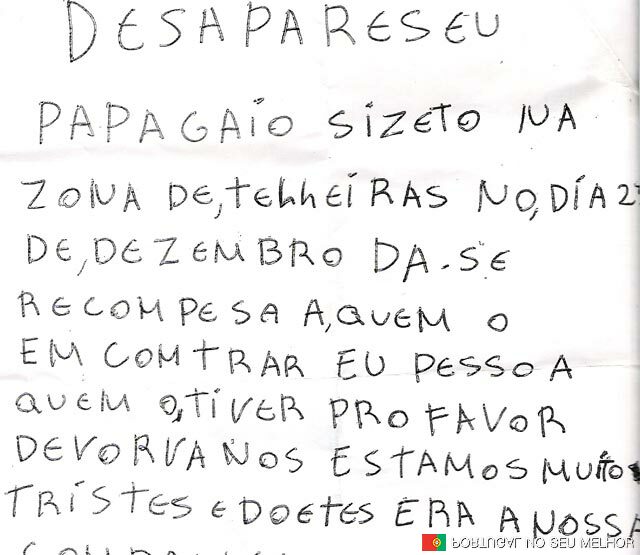 DESAPARESEU
PAPAGAIO SIZETO NA
ZONA DE,TELHEIRAS NO,DIA 2
DE,DEZEMBRO DA-SE
RECOMPESA A,QUEM O
EM COMTRAR EU PESSO A
QUEM O,TIVER PRO FAVOR
DEVORVANOS ESTAMOS MUITOS
TRISTES E DOETES ERA A NOSSA
PORTUGAL NO SEU MELHOR